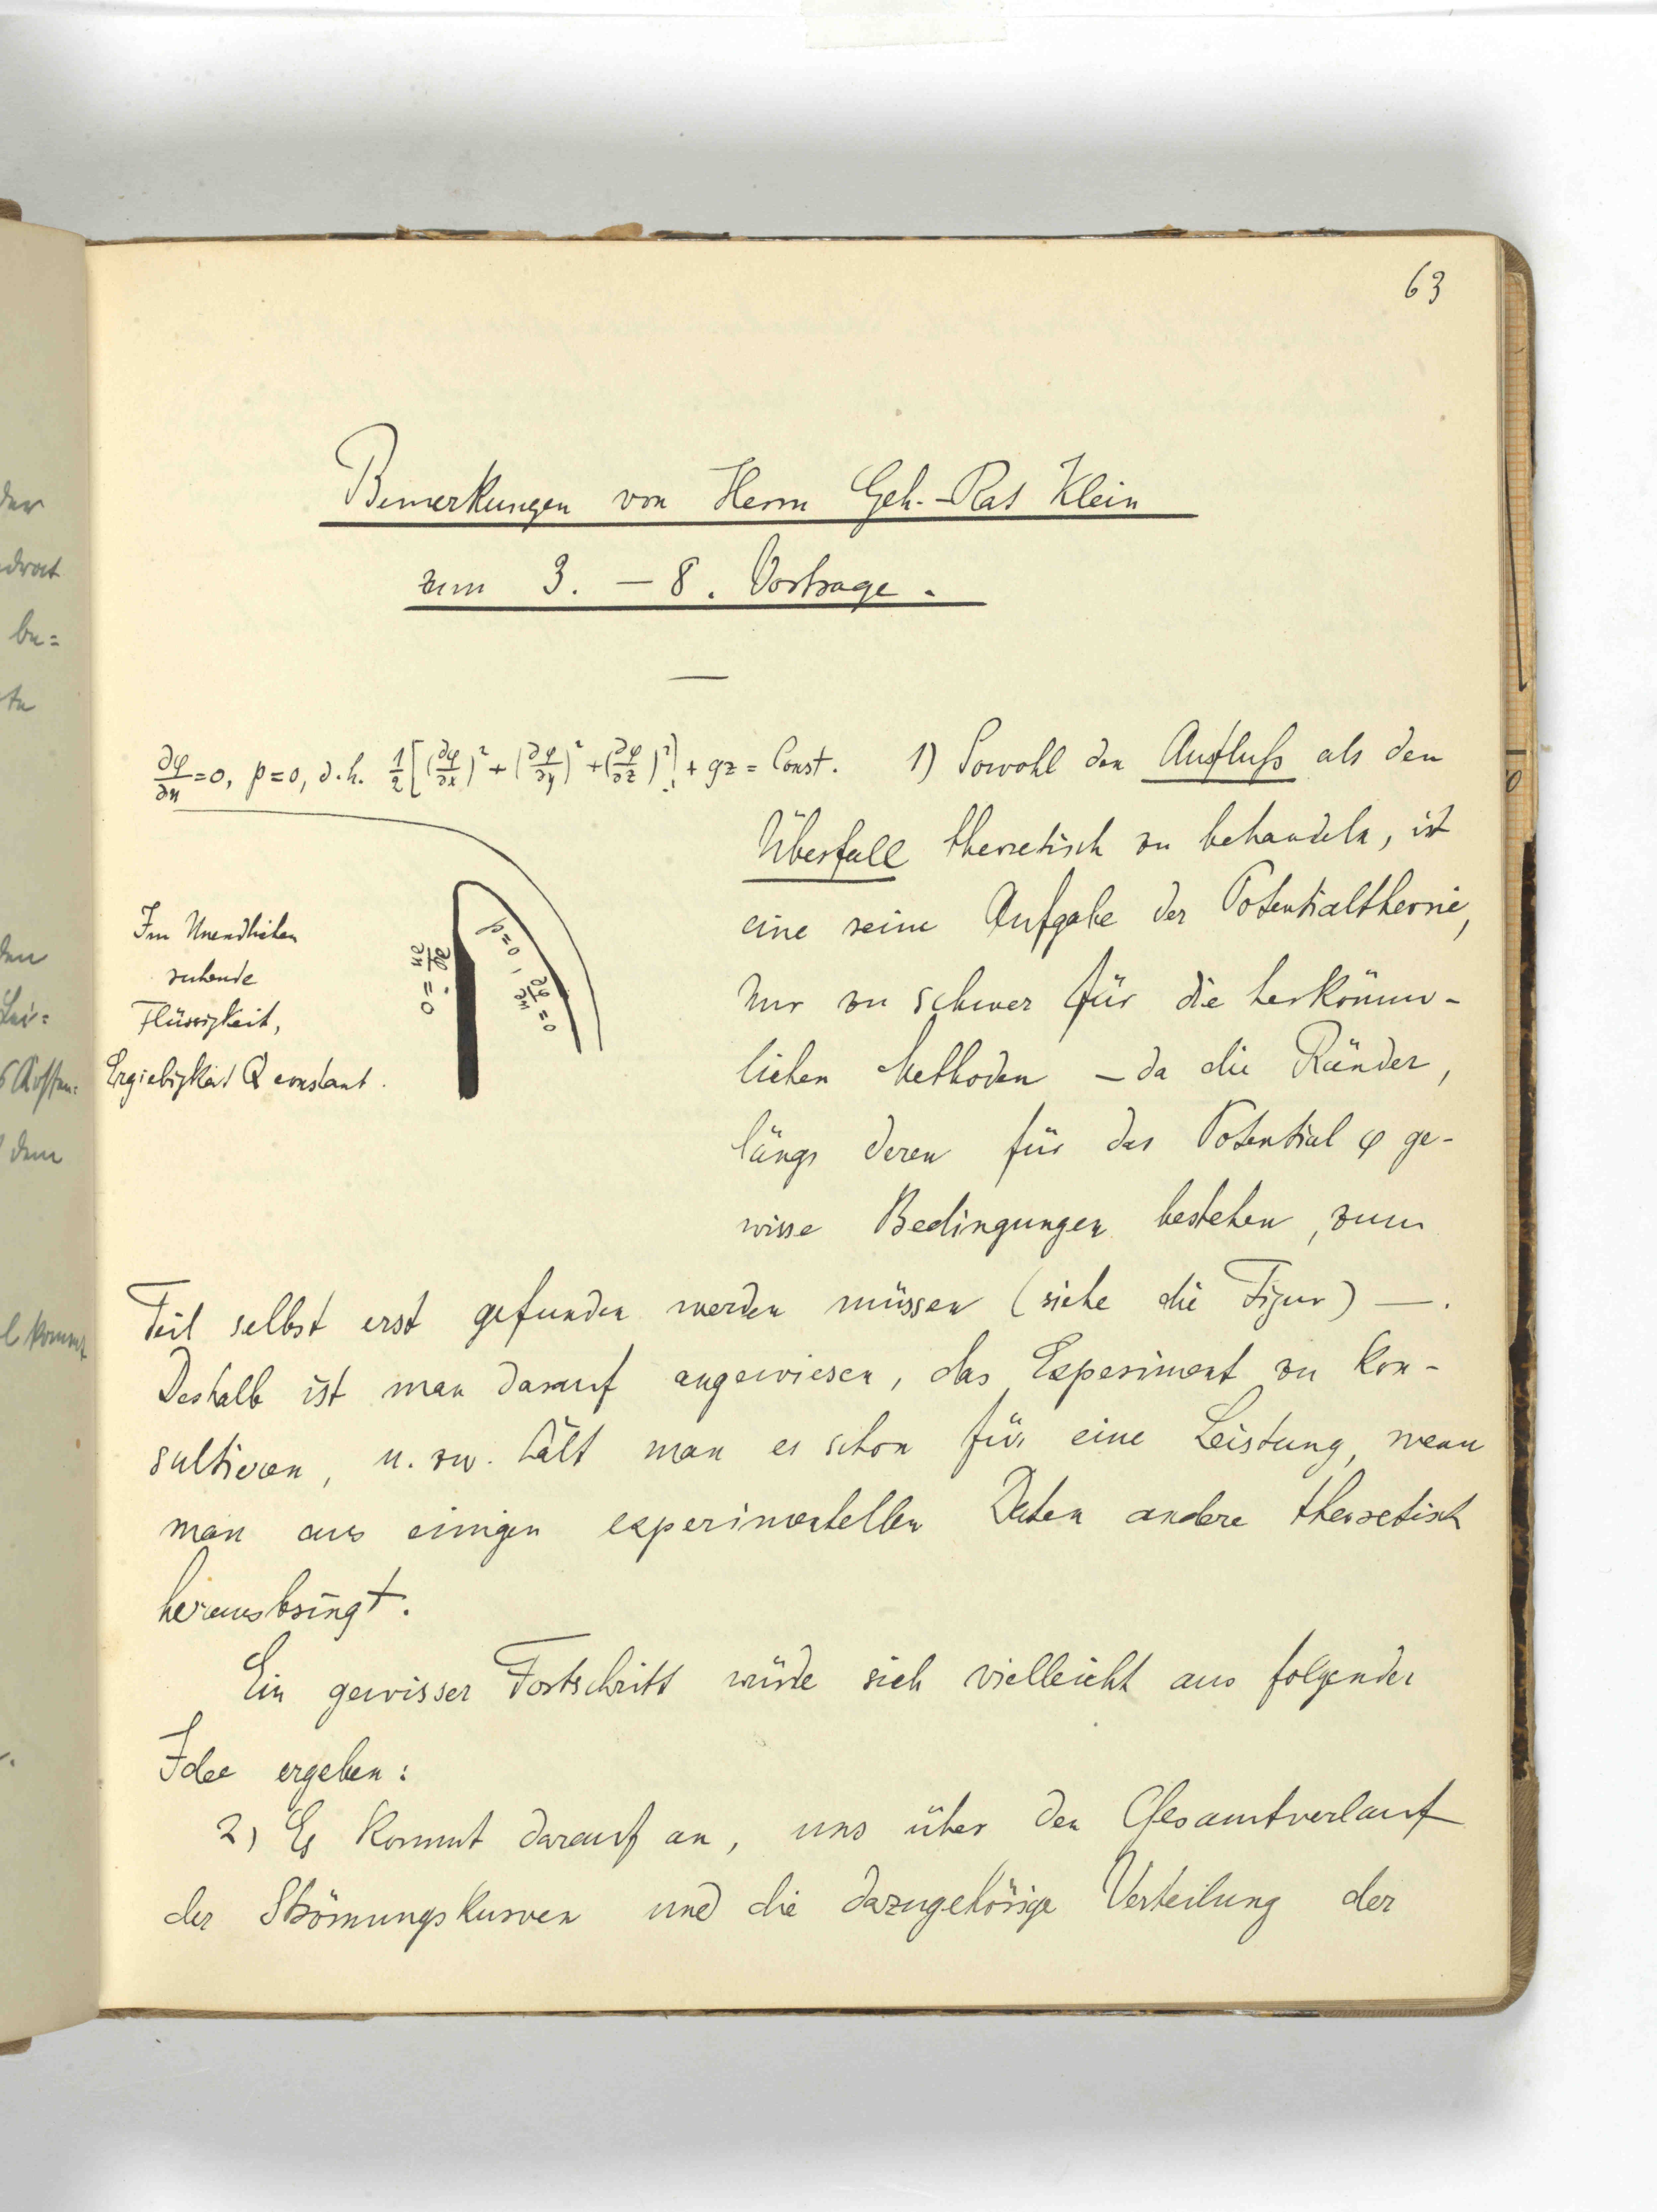 63
Bemerkungen von Herrn Geh.-Rat Klein
zum 3. – 8. Vortrage.
∂φ/∂n = 0, p = 0, d.h. 1/2 [(∂φ/∂x)² + (∂φ/∂y)² + (∂φ/∂z)²] + gz = Const.
Im Unendlichen
ruhende
Flüssigkeit,
Ergiebigkeit Q constant.
∂φ/∂n = 0
p = 0, ∂φ/∂n = 0
1) Sowohl den Ausfluß als den
Überfall theoretisch zu behandeln, ist
eine reine Aufgabe der Potentialtheorie,
nur zu schwer für die herkömm-
lichen Methoden – da die Ränder,
längs deren für das Potential φ ge-
wisse Bedingungen bestehen, zum
Teil selbst erst gefunden werden müssen (siehe die Figur) –.
Deshalb ist man darauf angewiesen, das Experiment zu kon-
sultieren, u. zw. hält man es schon für eine Leistung, wenn
man aus einigen experimentellen Daten andere theoretisch
herausbringt.
Ein gewisser Fortschritt würde sich vielleicht aus folgender
Idee ergeben:
2) Es kommt darauf an, uns über den Gesamtverlauf
der Strömungskurven und die dazugehörige Verteilung der
der
be=
den
dem
kommt